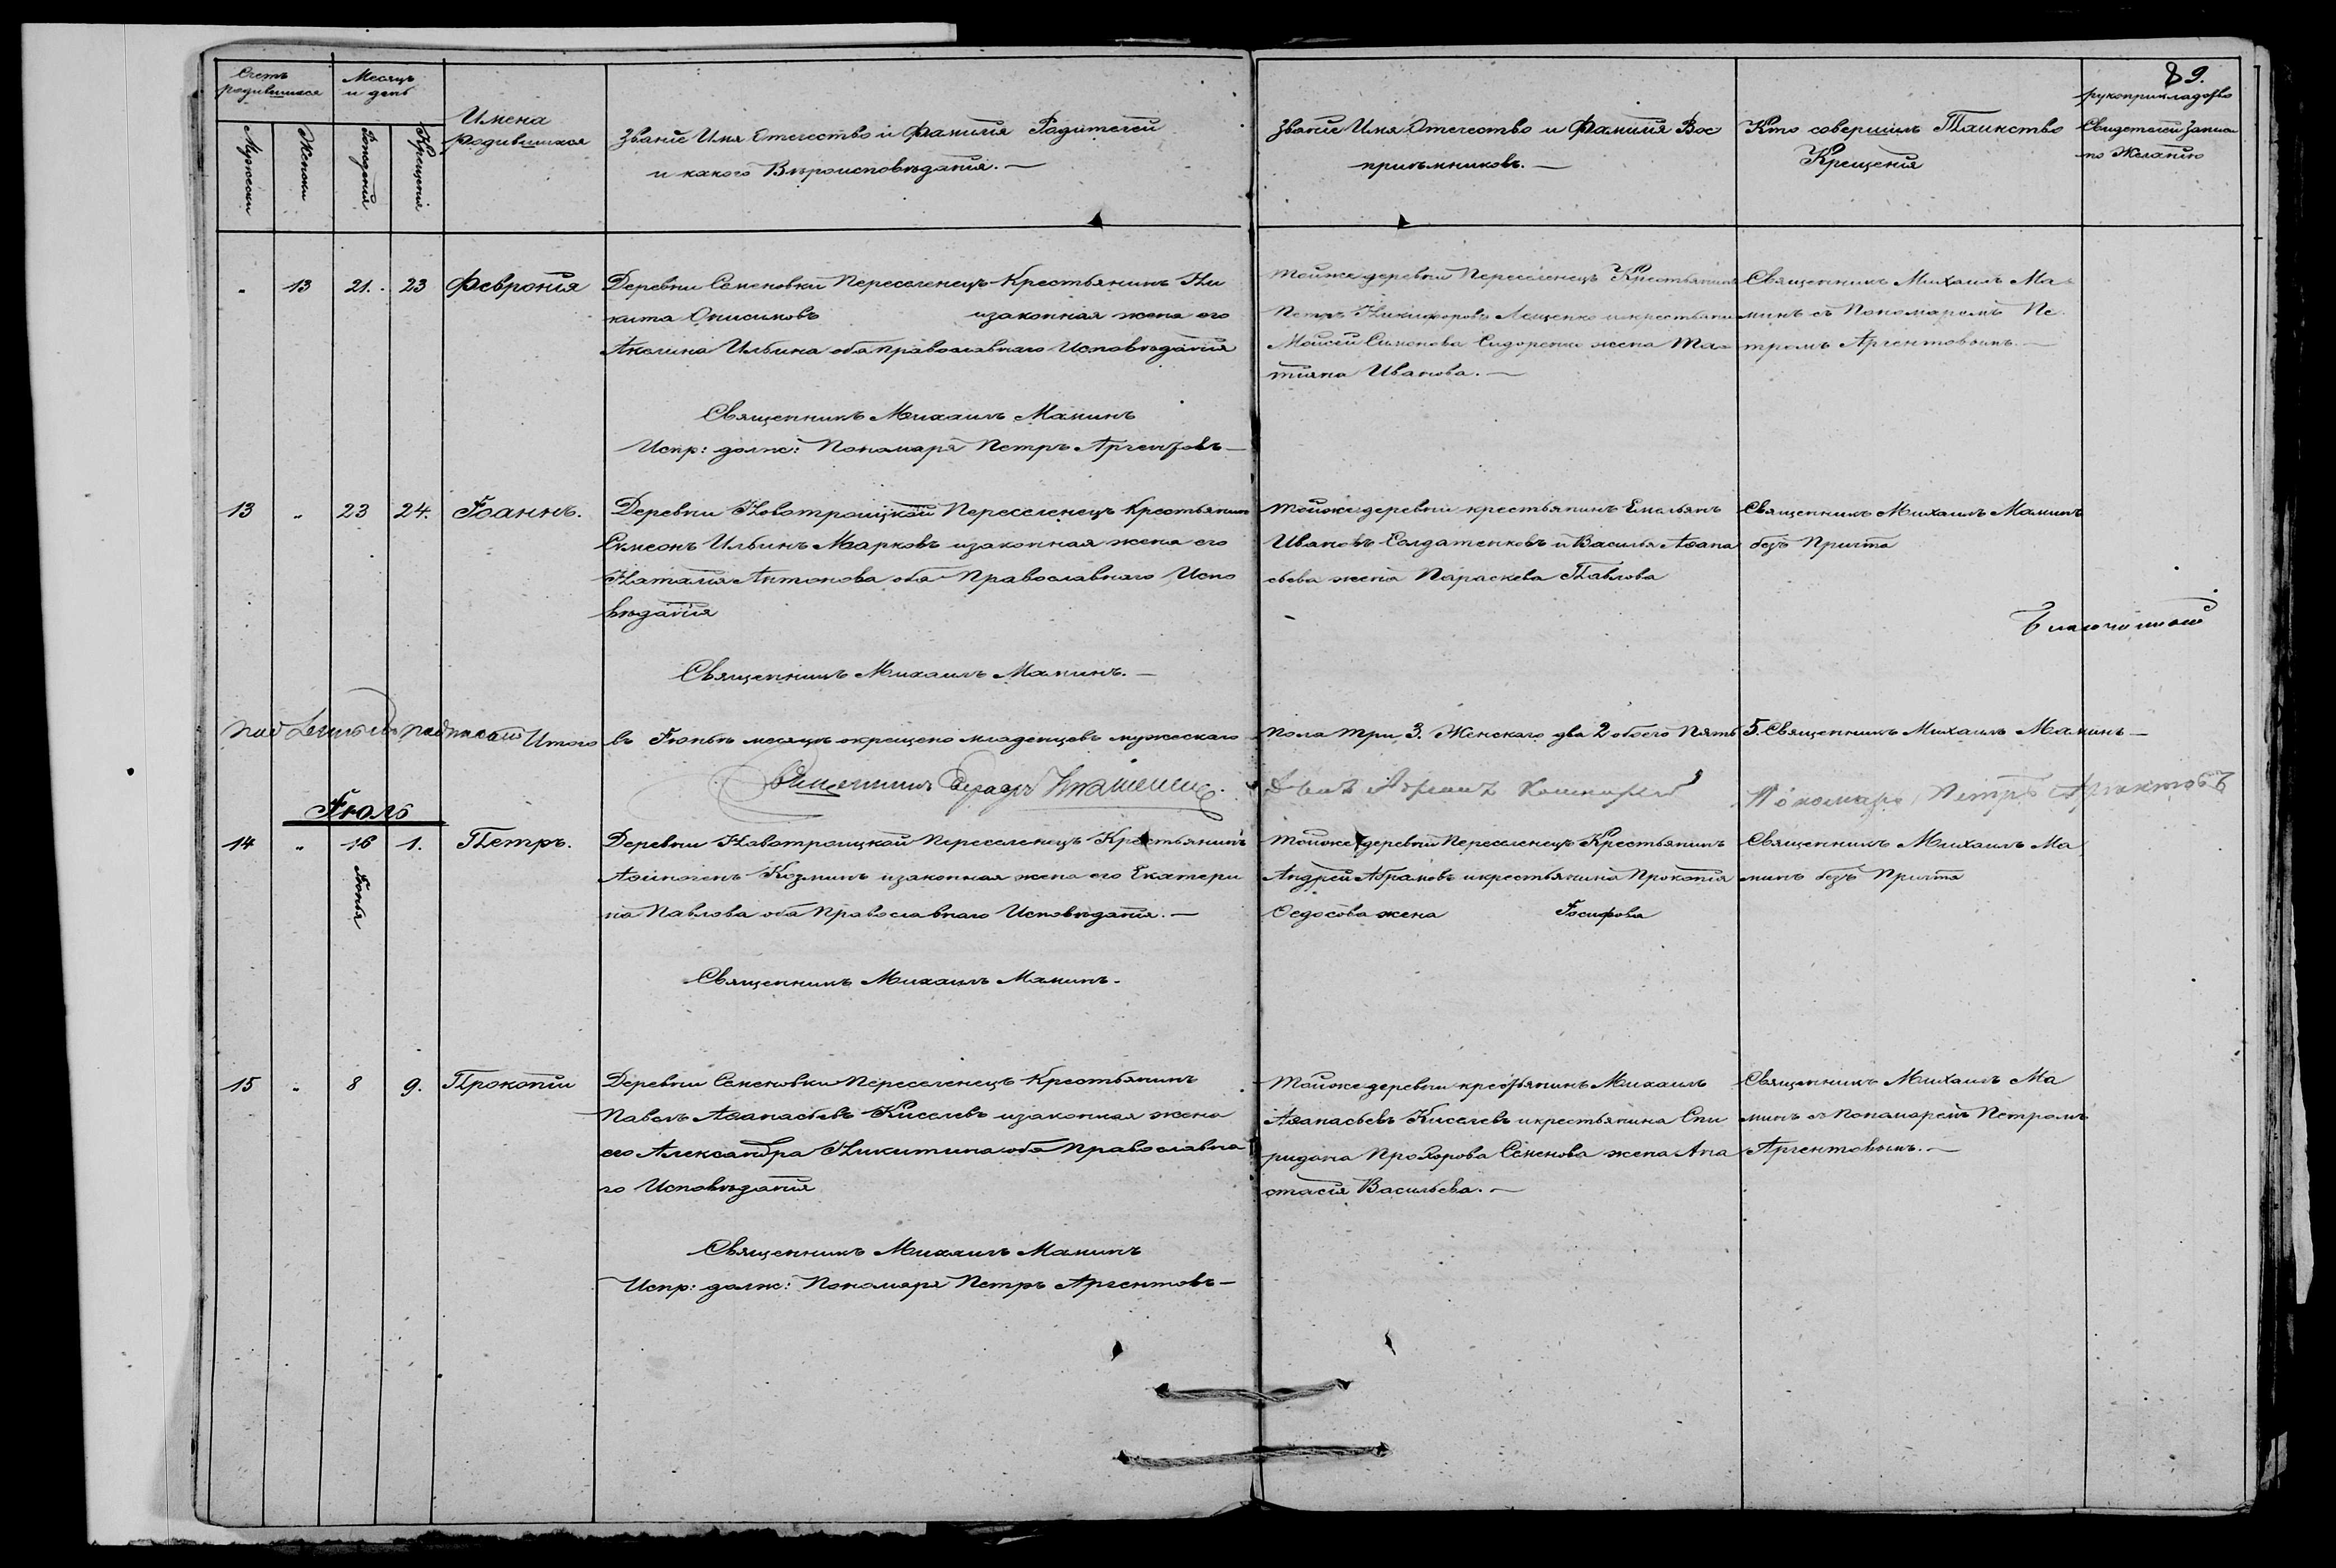 89.
Счетъ родившихся
Месяцъ и день
Мужески
Женски
Рождения
Крещения
Имена родившихся
Званіе Имя Отечество и Фамилія Родителей
и какого Вѣроисповѣданія. —
Званіе Имя Отечество и Фамилія Вос
пріемниковъ. —
Кто совершилъ Таинство
Крещенія
рукоприкладство
Свидетелей записи
по Желанію
" 13 21. 23 Февронія
Деревни Семеновки Переселенецъ Крестьянинъ Ни
кита Онисимовъ изаконная жена его
Акилина Ильина оба православнаго Исповѣданія
Священникъ Михаилъ Маминъ
Испр: долж: Пономаря Петръ Аргентовъ —
тойже деревни Переселенецъ Крестьянинъ
Петръ Никифоровъ Лещенко икрестьяни
Моисей Симонова Сидоренко жена Та
тіана Иванова. —
Священникъ Михаилъ Ма
минъ съ Пономаремъ Пе
тромъ Аргентовымъ. —
13 " 23 24. Іоаннъ.
Деревни Новотроицкой Переселенецъ Крестьянин
Симеонъ Ильинъ Марковъ изаконная жена его
Наталія Антонова оба Православнаго Испо
вѣданія
Священникъ Михаилъ Маминъ. —
тойже деревни крестьянинъ Емельянъ
Ивановъ Солдатенковъ и Василья Аѳана
сьева жена Параскева Павлова
Священникъ Михаилъ Маминъ
безъ Причта
Итого въ Іюнѣ месяцѣ окрещено младенцевъ мужескаго пола три 3. Женскаго два 2 обоего Пять 5. Священникъ Михаилъ Маминъ —
Пономарь Петръ Аргентовъ
Іюль
14 " 16 Іюнья 1. Петръ.
Деревни Новотроицкой Переселенецъ Крестьянинъ
Аѳиногенъ Козминъ изаконная жена его Екатери
на Павлова оба Православнаго Исповѣданія. —
Священникъ Михаилъ Маминъ.
тойже деревни Переселенецъ Крестьянинъ
Андрей Абрамовъ икрестьянина Прокопія
Ѳедосова жена Іосифова
Священникъ Михаилъ Ма
минъ безъ Причта
15 " 8 9. Прокопій
Деревни Семеновки Переселенецъ Крестьянинъ
Павелъ Аѳанасьевъ Киселевъ изаконная жена
его Александра Никитина оба Православна
го Исповѣданія
Священникъ Михаилъ Маминъ
Испр: долж: Пономаря Петръ Аргентовъ —
тойже деревни крестьянинъ Михаилъ
Аѳанасьевъ Киселевъ икрестьянина Спи
ридона Прохорова Семенова жена Ана
стасія Васильева. —
Священникъ Михаилъ Ма
минъ съ Пономаремъ Петромъ
Аргентовымъ. —